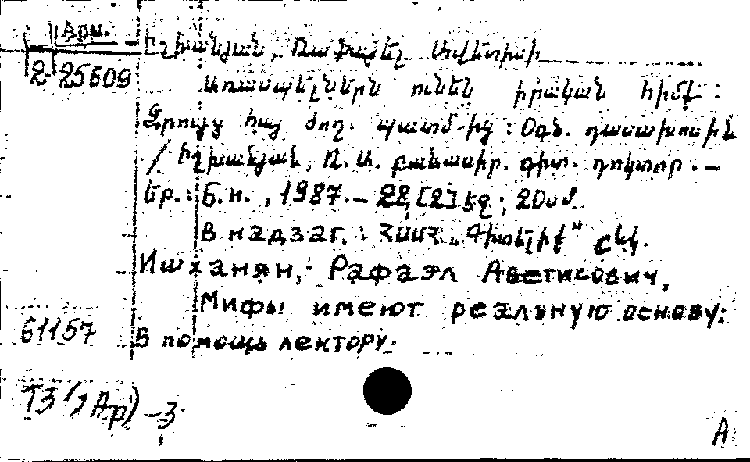 Арм.
2-25609
Իշխանյան, Ռաֆայել Ավետիսի
Առասպելներն ունեն իրական հիմք:
Զրույց հայ ժող. պատմ-ից: Օգն. դասախոսին
/ Իշխանյան, Ռ. Ա. բանասիր. գիտ. դոկտոր. –
Եր.: Б.и., 1987. – 22, [2] էջ; 20սմ.
В надзаг.: ՀՍՍՀ „Գիտելիք" ընկ.
Ишханян, Рафаэл Аветисович.
Мифы имеют реальную основу:
61157 В помощь лектору.
Т3(2Ар)-3
А